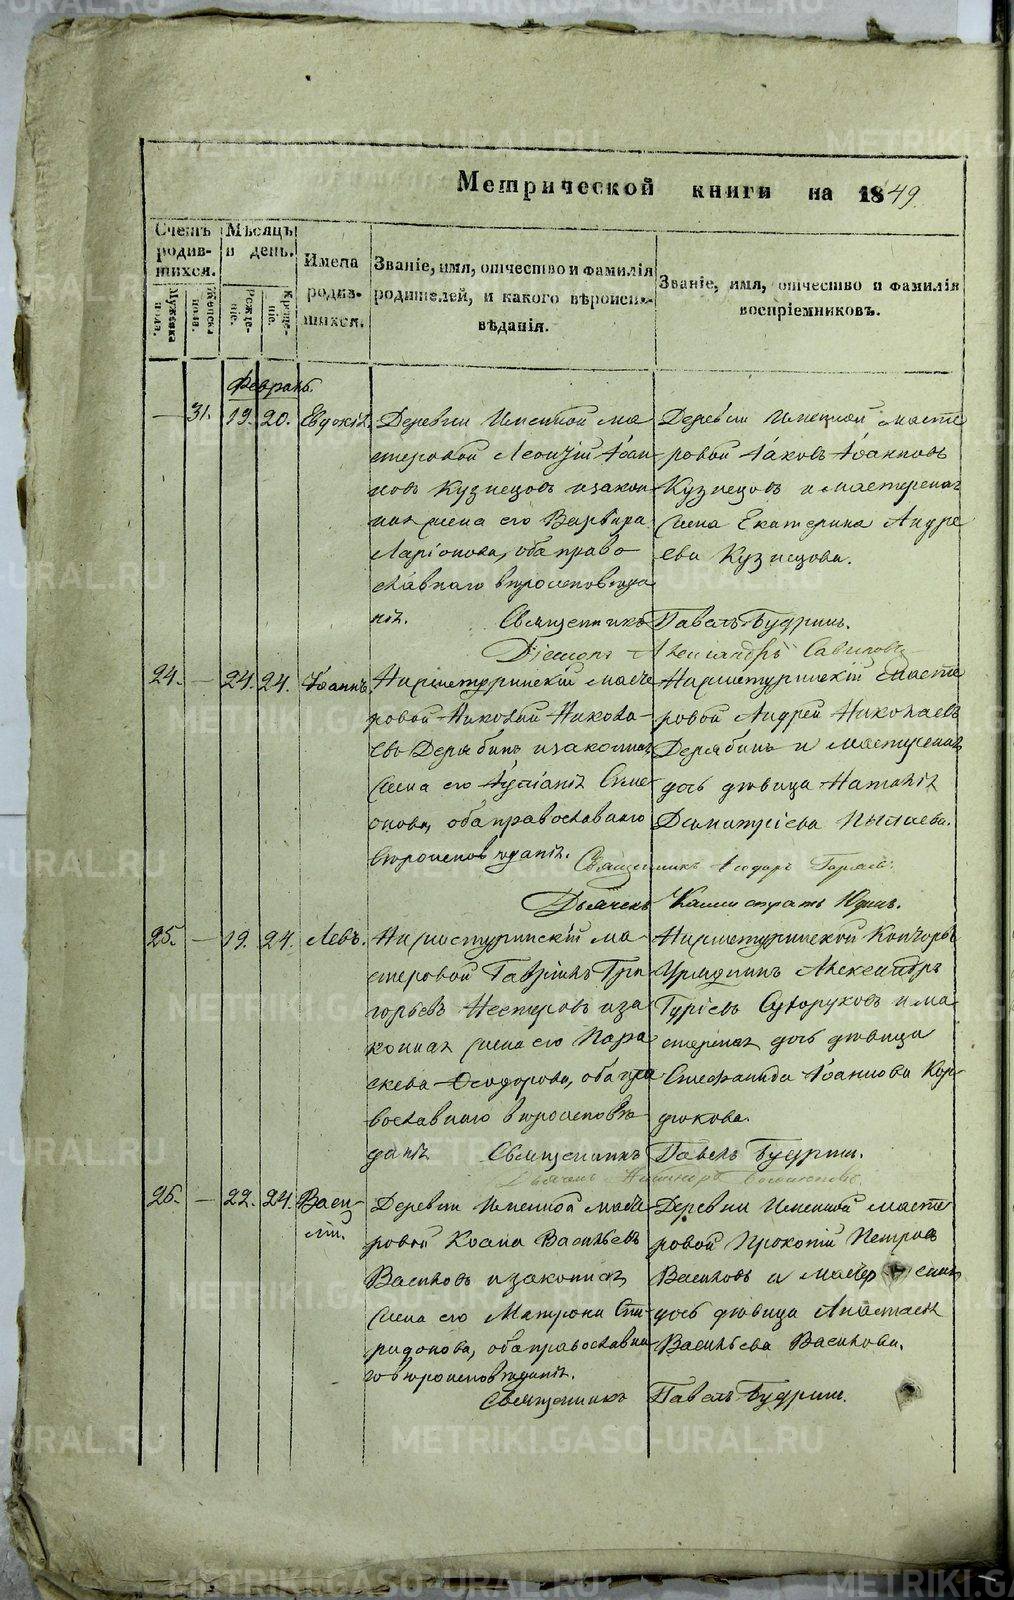 METRIKI.GASO-URAL.RU
Метрической книги на 1849
Счетъ родив-шихся.
Мѣсяцъ и день.
Имена родив-шихся.
Званіе, имя, отчество и фамилія родителей, и какого вѣроиспо-вѣданія.
Званіе, имя, отчество и фамилія воспріемниковъ.
Мужеска пола.
Женска пола.
Рожде-ніе.
Креще-ніе.
Февраль.
— 31. 19. 20. Евдокія.
Деревни Именной ма-
стеровой Леонтій Іоан-
новъ Кузнецовъ и закон-
ная жена его Варвара
Ларіонова, оба право-
славнаго вѣроисповѣда-
нія.
Деревни Именной масте
ровой Іаковъ Іоанновъ
Кузнецовъ и мастерская
жена Екатерина Андре
ева Кузнецова.
Священникъ Павелъ Будринъ.
Діаконъ Александръ
24. — 24. 24. Іоаннъ.
Нижнетуринскій масте
ровой Николай Никола-
евъ Дерябинъ и законная
жена его Симе-
онова, оба православнаго
вѣроисповѣданія.
Нижнетуринскій масте
ровой Андрей Николаевъ
Дерябинъ и мастерская
дочь дѣвица Наталія
Димитріева
Священникъ Ѳеодоръ
Дьячекъ Каллистратъ Юдинъ.
25. — 19. 24. Левъ.
Нижнетуринскій ма-
стеровой Гавріилъ Гри
горьевъ Нестеровъ и за-
конная жена его Пара
скева Ѳеодорова, оба пра
вославнаго вѣроисповѣ-
данія
Нижнетуринской Конторы
Урядникъ Александръ
Гурьевъ Сухоруковъ и ма-
стерская дочь дѣвица
Стефанида Іоаннова Кор-
дюкова.
Священникъ Павелъ Будринъ.
Дьячекъ
26. — 22. 24. Васи-
лій.
Деревни Именной масте
ровой Козма Васильевъ
Васиковъ и законная
жена его Матрона Спи-
ридонова, оба православна
го вѣроисповѣданія.
Деревни Именной масте
ровой Прокопій Петровъ
Васиковъ и мастерская
дочь дѣвица Анастасія
Васильева Васикова.
Священникъ Павелъ Будринъ.